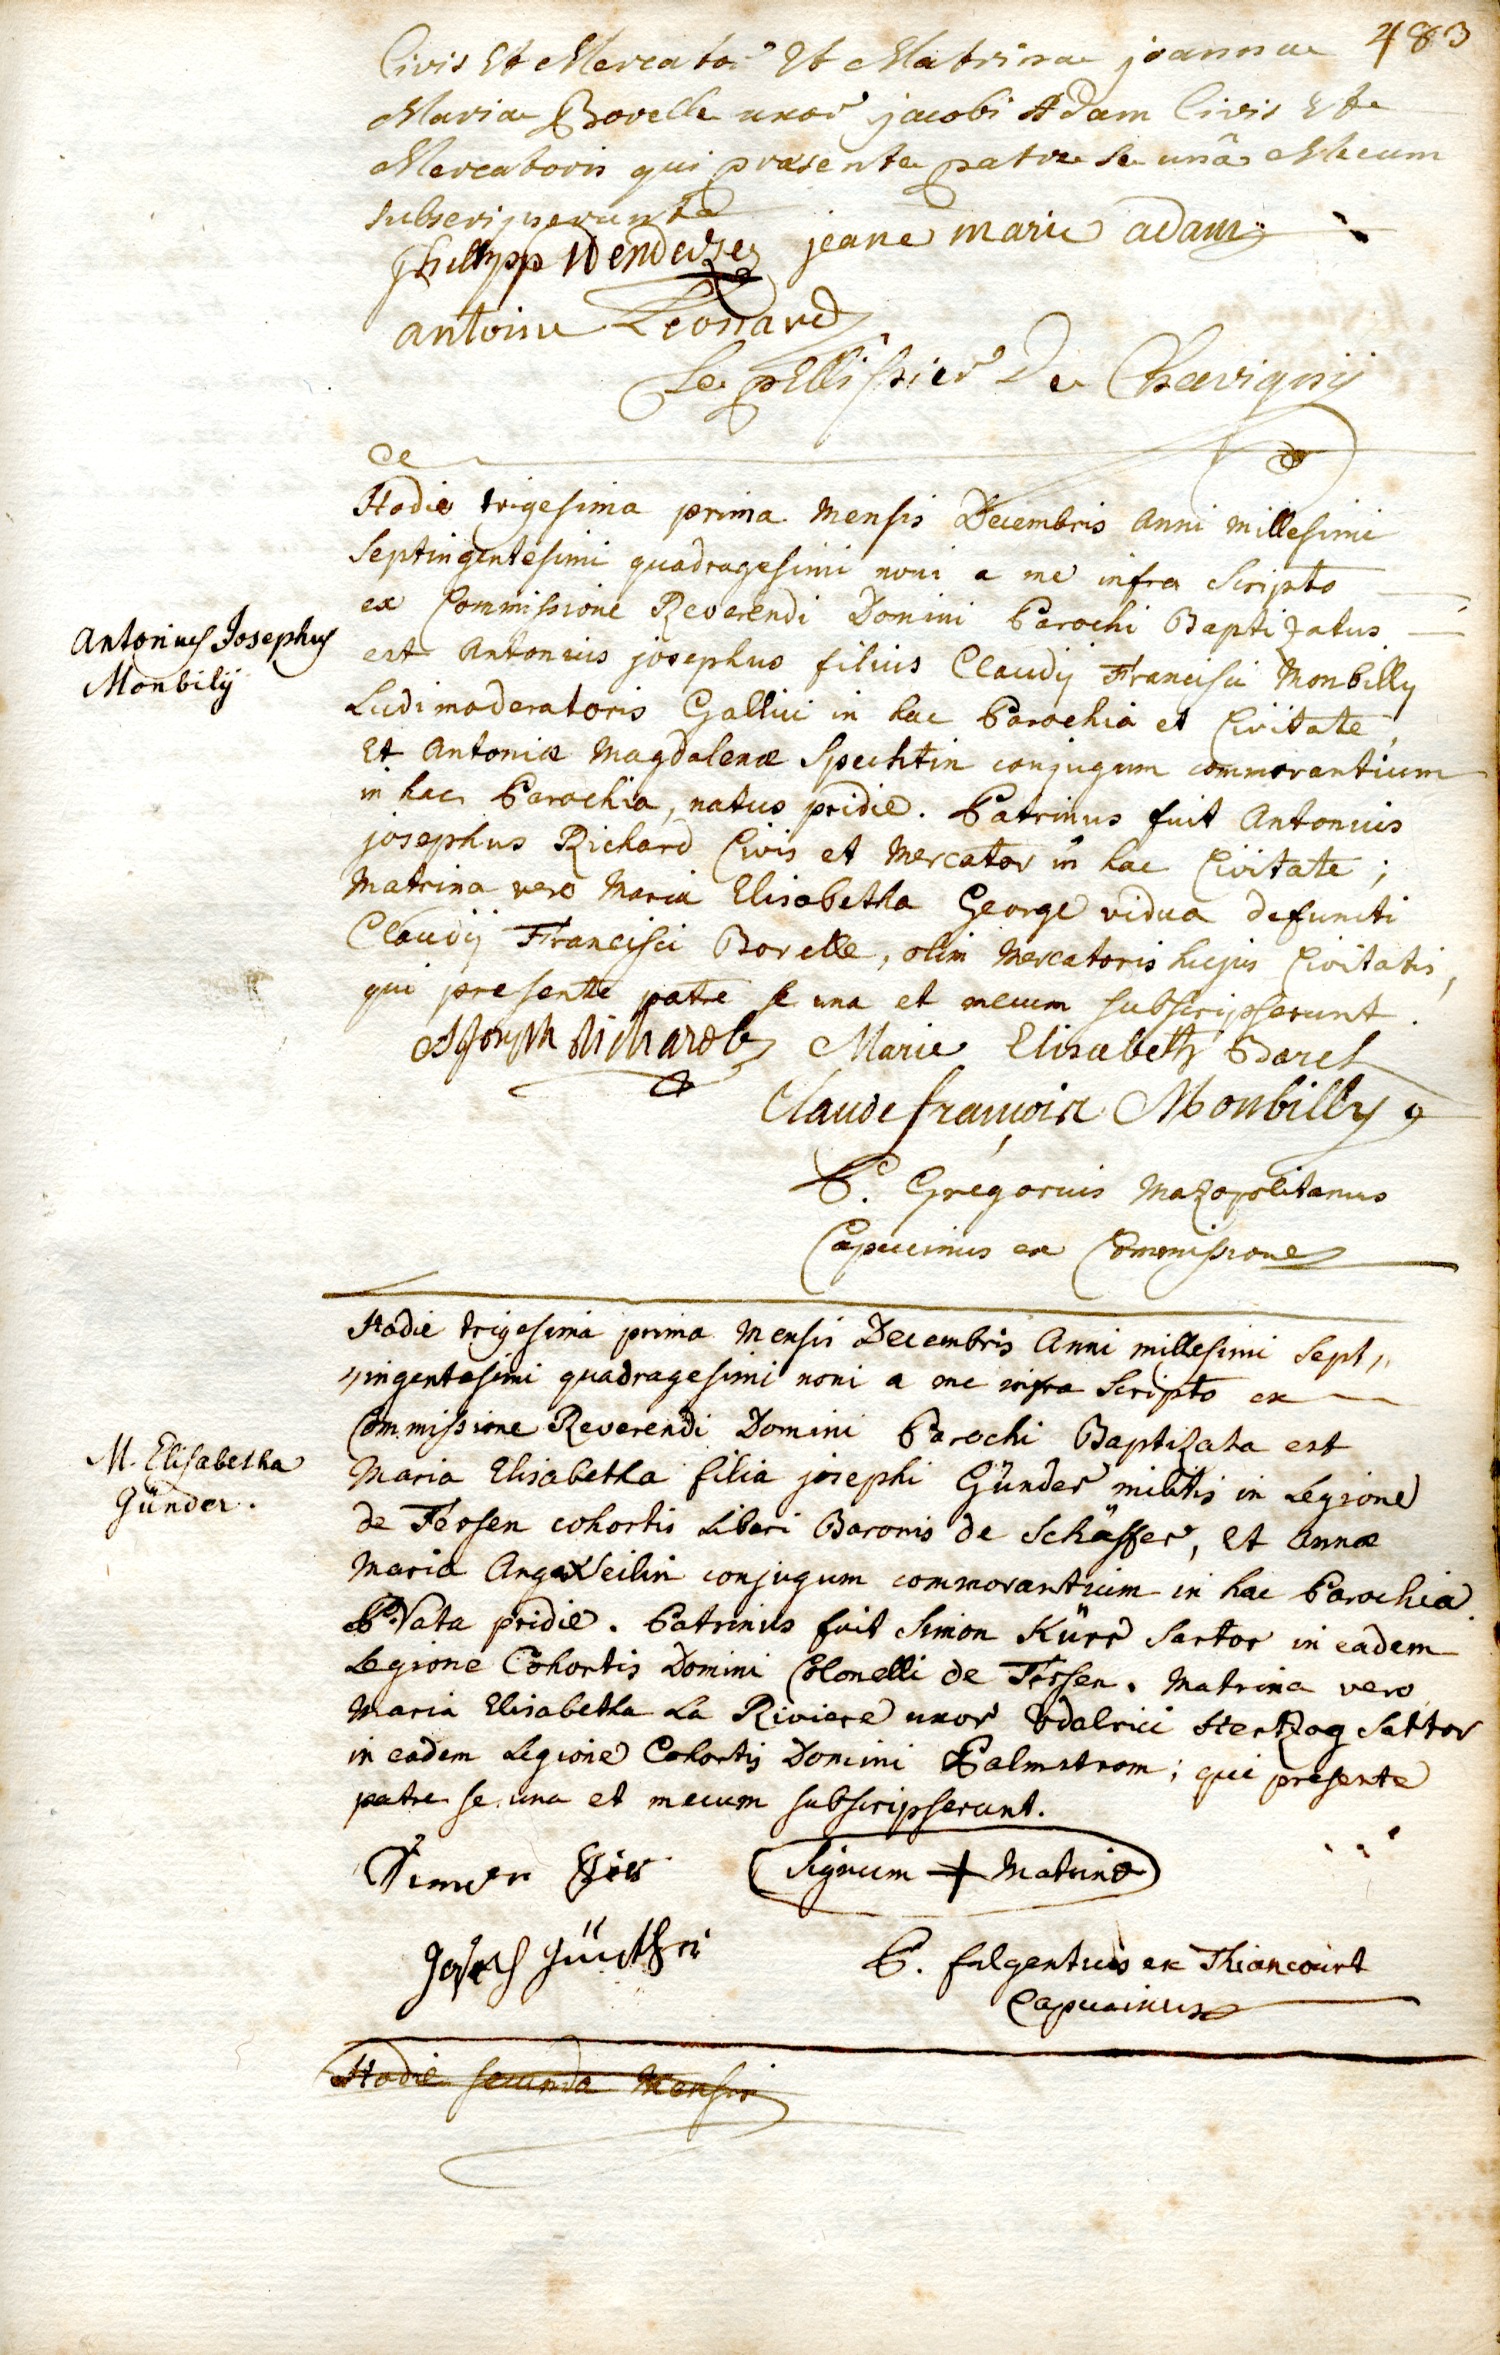 483
Civis Et Mercator Et Matrina joanna
Maria Borelle uxor jacobi Adam Civis Et
Mercatoris qui præsente patre se unâ Mecum
subscripserunt
philipp Wendelze jeane marie adam
antoine Leonard
Le pellissier De Chavigny
Hodie trigesima prima mensis Decembris Anni millesimi
septingentesimi quadragesimi noni a me infra scripto
ex Commissione Reverendi Domini Parochi Baptizatus
Antonius Josephus
Monbilij
est Antonius josephus filius Claudij Francisci Monbilly
Ludimoderatoris Gallici in hac Parochia et Civitate,
Et Antoniæ Magdalenæ Spechtin conjugum commorantium
in hac Parochia, natus pridie. Patrinus fuit Antonius
josephus Richard Civis et Mercator in hac Civitate;
Matrina vero Maria Elisabetha George vidua defuncti
Claudij Francisci Borelle, olim Mercatoris hujus Civitatis,
qui presente patre se una et mecum subscripserunt.
Joseph Richard Marie Elisabeth Borel
Claude françois Monbilly
P. Gregorius Mazopolitanus
Capucinus ex Commissione
Hodie trigesima prima Mensis Decembris Anni millesimi Sept„
„ingentesimi quadragesimi noni a me infra scripto ex
Commissione Reverendi Domini Parochi Baptizata est
M. Elisabetha
Günder.
Maria Elisabetha filia josephi Günder militis in Legione
de Fersen cohortis Liberi Baronis de Schäffer, Et Annæ
Maria Angaxeilin conjugum commorantium in hac Parochia.
Nata pridie. Patrinus fuit Simon Kürr Sartor in eadem
Legione Cohortis Domini Colonelli de Fersen. Matrina vero
Maria Elisabetha La Riviere uxor Udalrici Hertzog Sattor
in eadem Legione Cohortis Domini Palmstrom; qui presente
patre se una et mecum subscripserunt.
Signum + Matrinæ
P. fulgentius ex Thiancourt
Capucinus
Hodie secunda Mensis